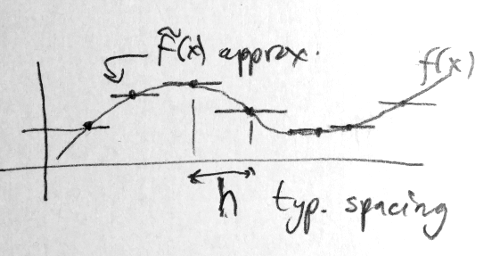 F̃(x) approx.
f(x)
h typ. spacing